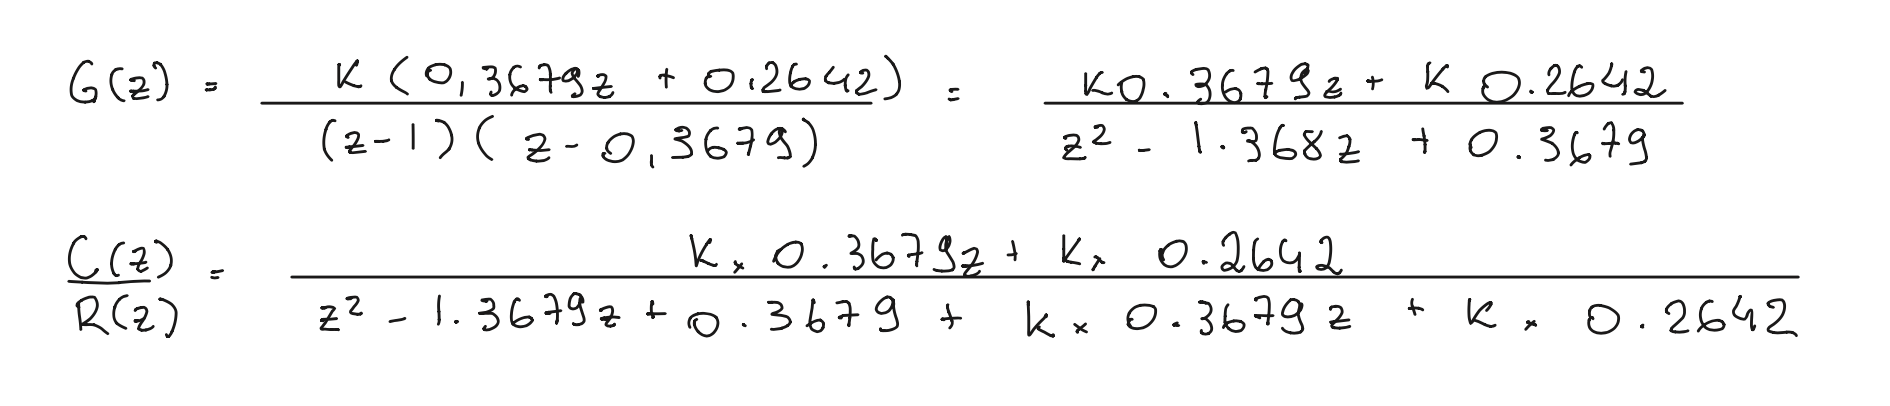 G(z) = K(0,3679z + 0.2642) / (z-1)(z-0,3679) = K0.3679z + K 0.2642 / z² - 1.368z + 0.3679
C(z) / R(z) = K × 0.3679z + K × 0.2642 / z² - 1.3679z + 0.3679 + K × 0.3679z + K × 0.2642